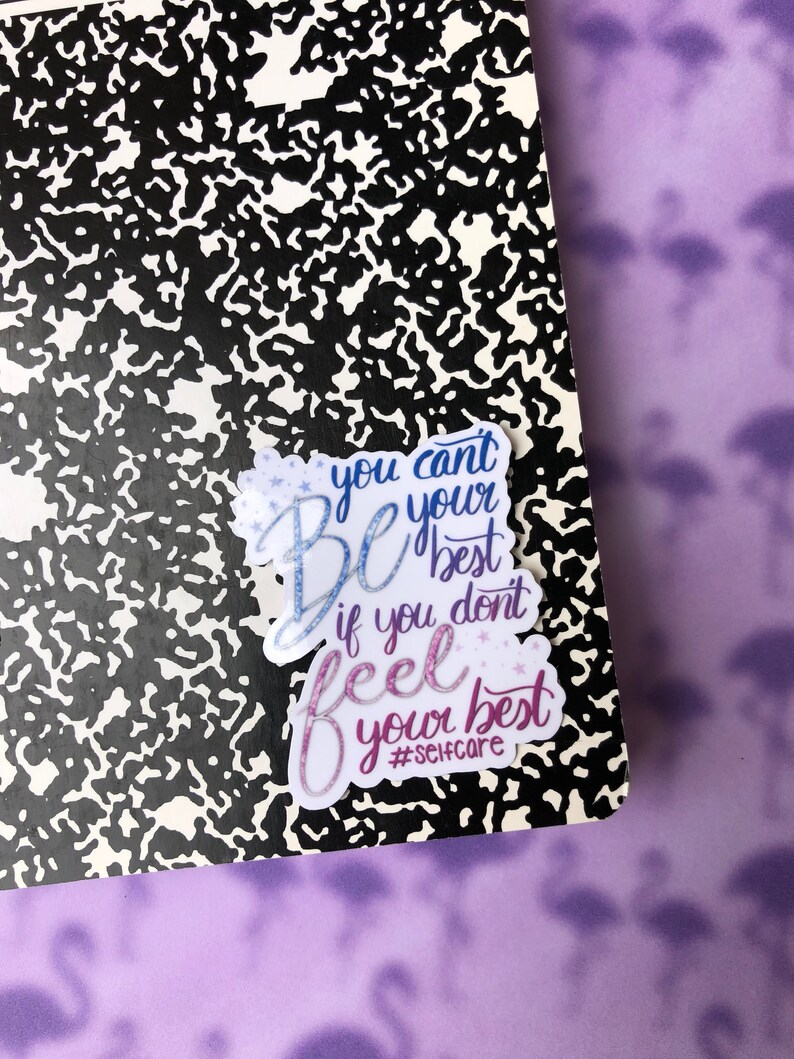 you can't
Be your
best
if you don't
feel
your best
#selfcare